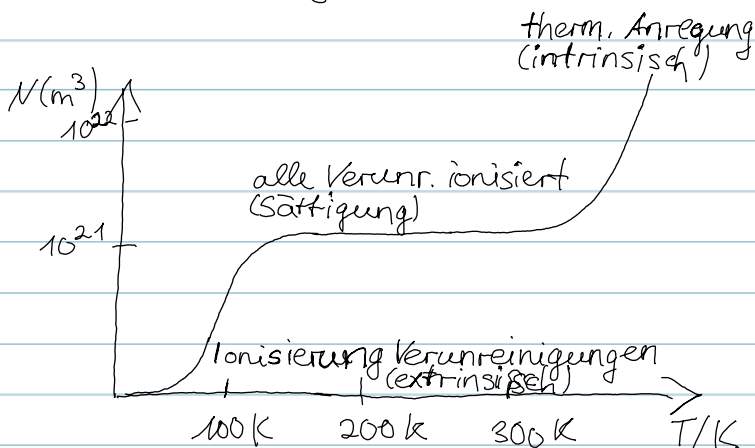 therm. Anregung
(intrinsisch)
N(m³)
10²²
alle Verunr. ionisiert
(Sättigung)
10²¹
Ionisierung Verunreinigungen
(extrinsisch)
100K 200K 300K T/K